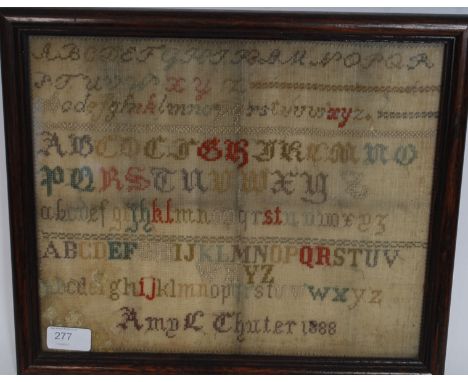 ABCDEFGHIJKLMNOPQR
STUVW XYZ
abcdefghiklmnopqrstuvwxyz
ABCDEFGHIKLMNO
PQRSTUVWXYZ
abcdefghiklmnopqrstuvwxyz
ABCDEFGHIJKLMNOPQRSTUV
WXYZ
abcdefghijklmnopqrstuvwxyz
Amy L Chuter 1888
277